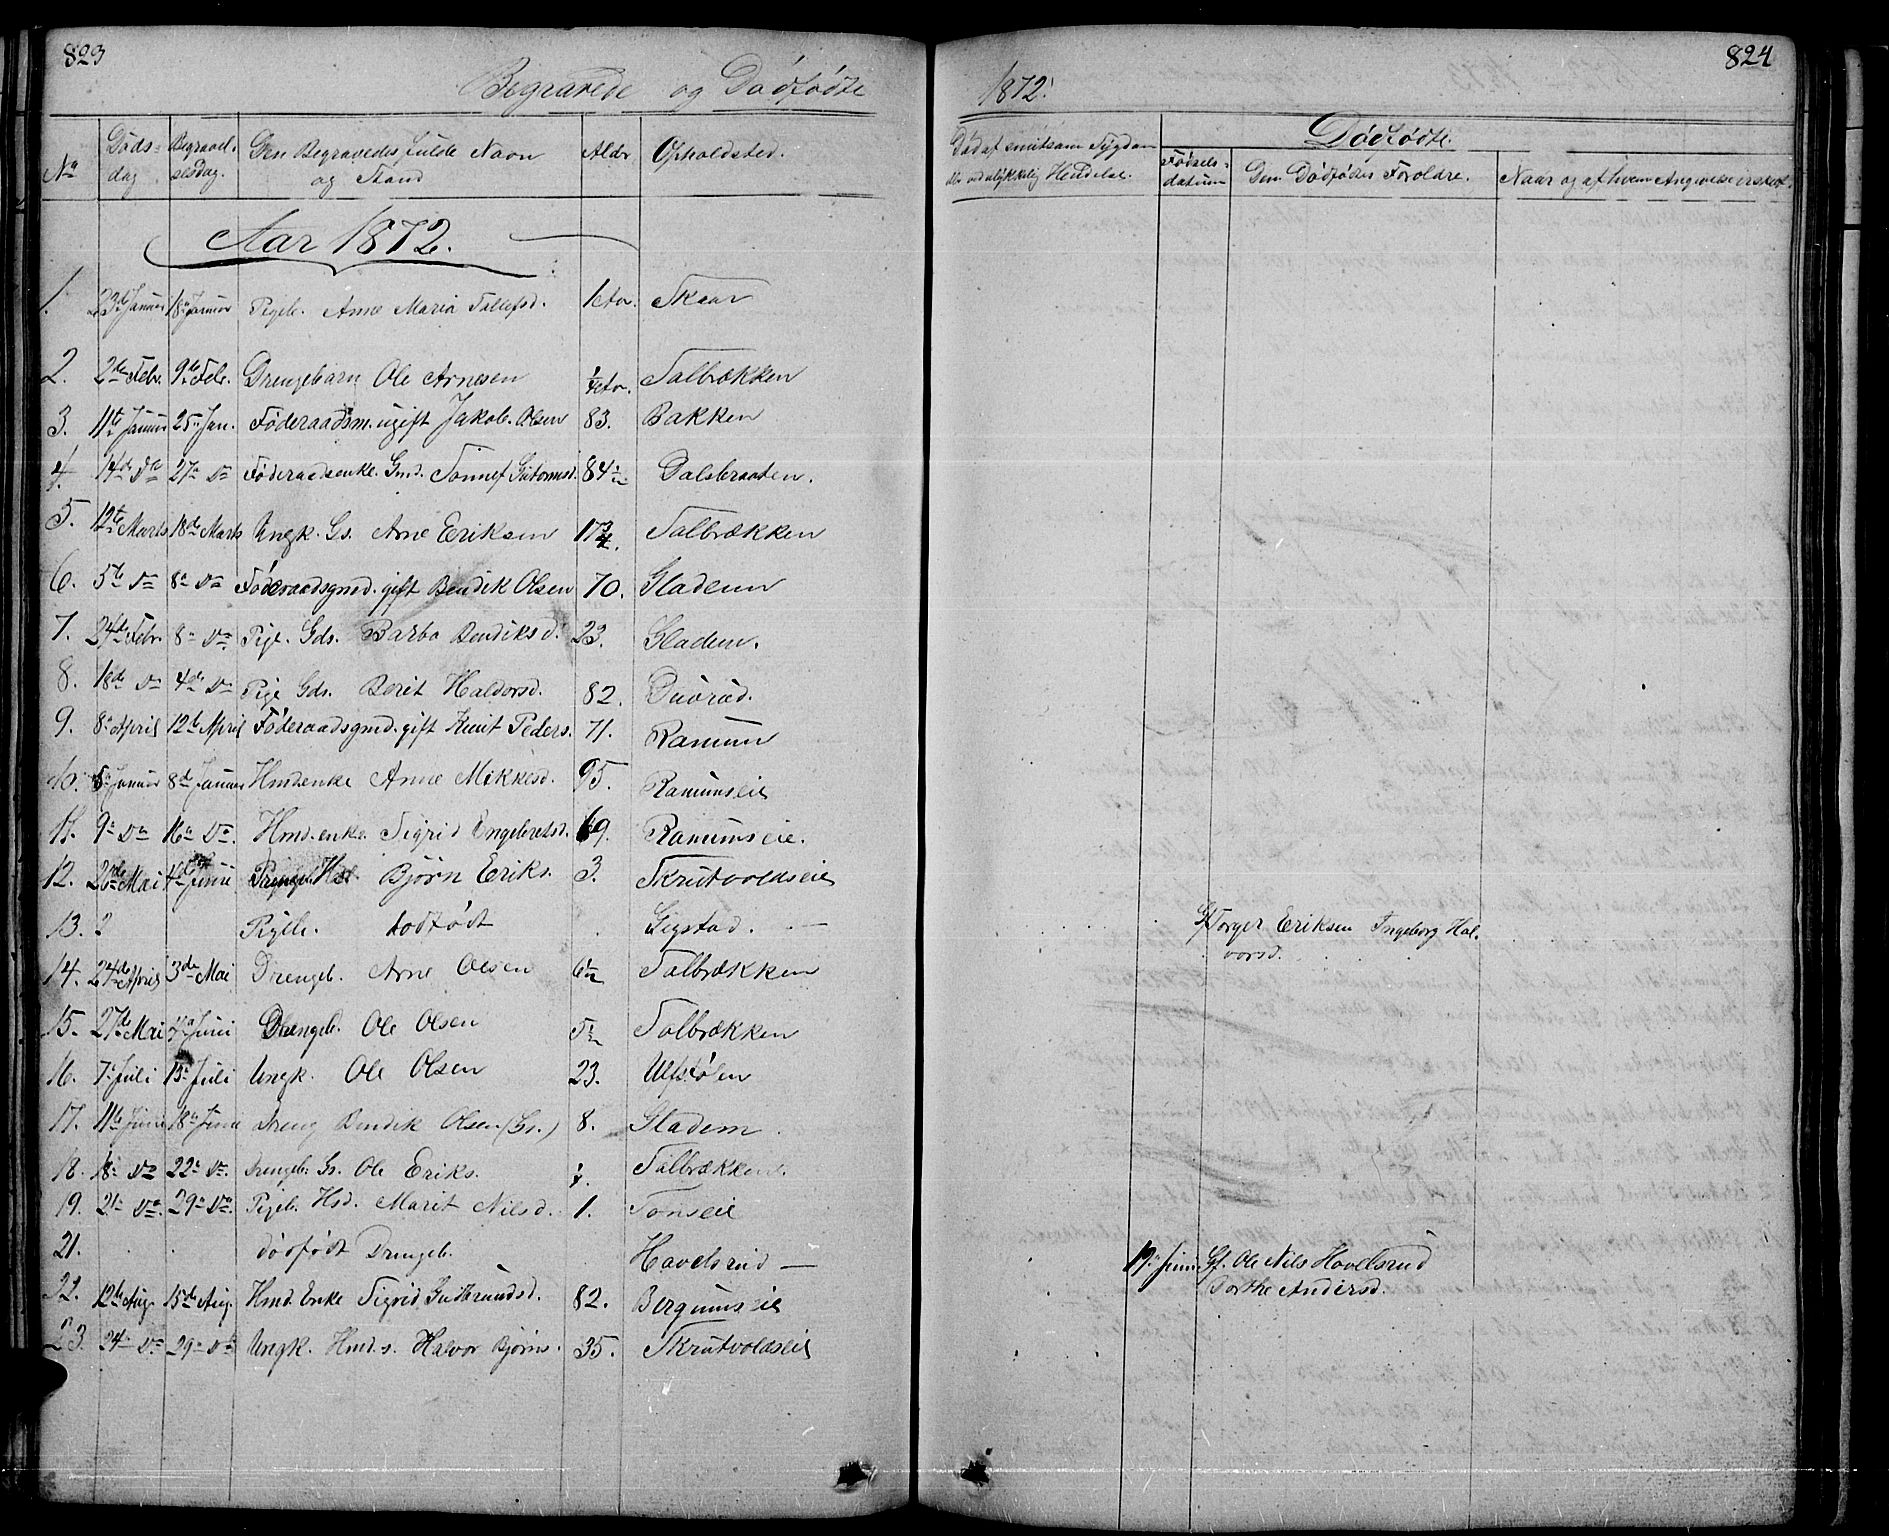 823
Begravede og Dødfødte
No Døds-dag. Begravel-sesdag. Den Begravedes fulde Navn og Stand Alder Opholdsted.
Aar 1872.
1. 23de Januar 18de Januar Pigeb. Anne Maria Tollefsd. 1 etAr. Skaar
2. 2de Febr. 9de Feb. Drengebarn Ole Arnesen 1/4 etAr. Tolbrækken
3. 11te Januar 25de Jan. Føderaadsm. ugift Jakob Olsen 83. Bakken
4. 14de Do 27de Do Føderaadsenke Gmd. Guttormsd. 84 1/2 Dalsbraaten.
5. 12te Marts 18de Marts Ungk. Gs. Arne Eriksen 17 3/4. Tolbrækken
6. 5te Do 8de Do Føderaadsgmd. gift Bendik Olsen 70. Gladeim
7. 24de Febr. 8de Do Pige Gds. Barbo Bendiksd. 23. Gladem.
8. 18de Do 4de Do Pige Gds. Berit Haldorsd. 82.
9. 8de April 12te April Føderaadsgmd. gift Knut Peders. 71. Ranum
10. 5te Januar 8de Januar Hmdenke Anne Mikkelsd. 95. Ranumseie
11. 9de Do 16de Do. Hmd.enke Sigrid Engebretsd. 69. Ranumseie.
12. 26de Mai 4de Juni Drengeb. Hs. Bjørn Eriks. 3. Skrutvoldseie
13. ? Pigeb. dødfødt Gigstad.
14. 24de April 3de Mai Drengeb. Arne Olsen 6 1/2 Tolbrækken
15. 27de Mai Juni Drengeb. Ole Olsen 5 1/2 Tolbrækken
16. 7de Juli 15de Juli Ungk. Ole Olsen 23. Ulfstølen
17. 11te Juni 18de Juni Dreng Bendik Olsen (Gs.) 8. Gladem
18. 18de Do 22de Do. Drengeb. Gs. Ole Eriks. Tolbrækken.
19. 21de Do. 29de Do. Pigeb. Hsd. Marit Nilsd. 1. Tonseie
21. dødfødt Drengeb. Havelsrud —
22. 12te Aug. 15de Aug. Hmd. Enke Sigrid Gudbrandsd. 82. Bergumseie
23. 24de Do 29de Do Ungk. Hmd.s. Halvor Bjørns. 35. Skrutvoldseie
824
1872.
Død af smitsom Sygdom eller ved ulykkelig Hendelse.
Dødfødte.
Fødsels-datum Den Dødfødtes Foreldre. Naar og af hvem Angivelse er skeet.
Gf Torger Eriksen Ingeborg Hal-
vorsd.
19de Juni Gf. Ole Nils Hovelsrud
Dorthe Andersd.